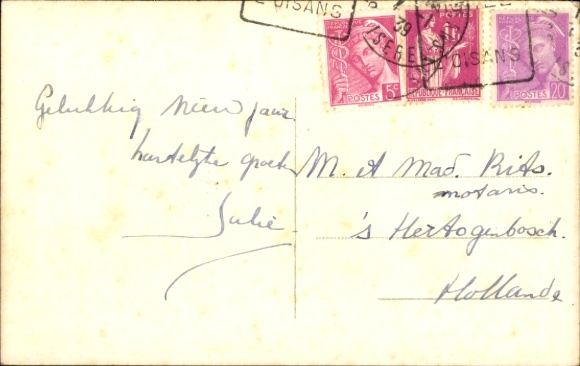 L'OISANS
39
L'OISANS
POSTES
5c
POSTES
RÉPUBLIQUE FRANÇAISE
POSTES
20c
Gelukkig Nieuwjaar
hartelijke groeten
Julie
M. et Mad. Rits.
notaris.
's Hertogenbosch.
Hollande